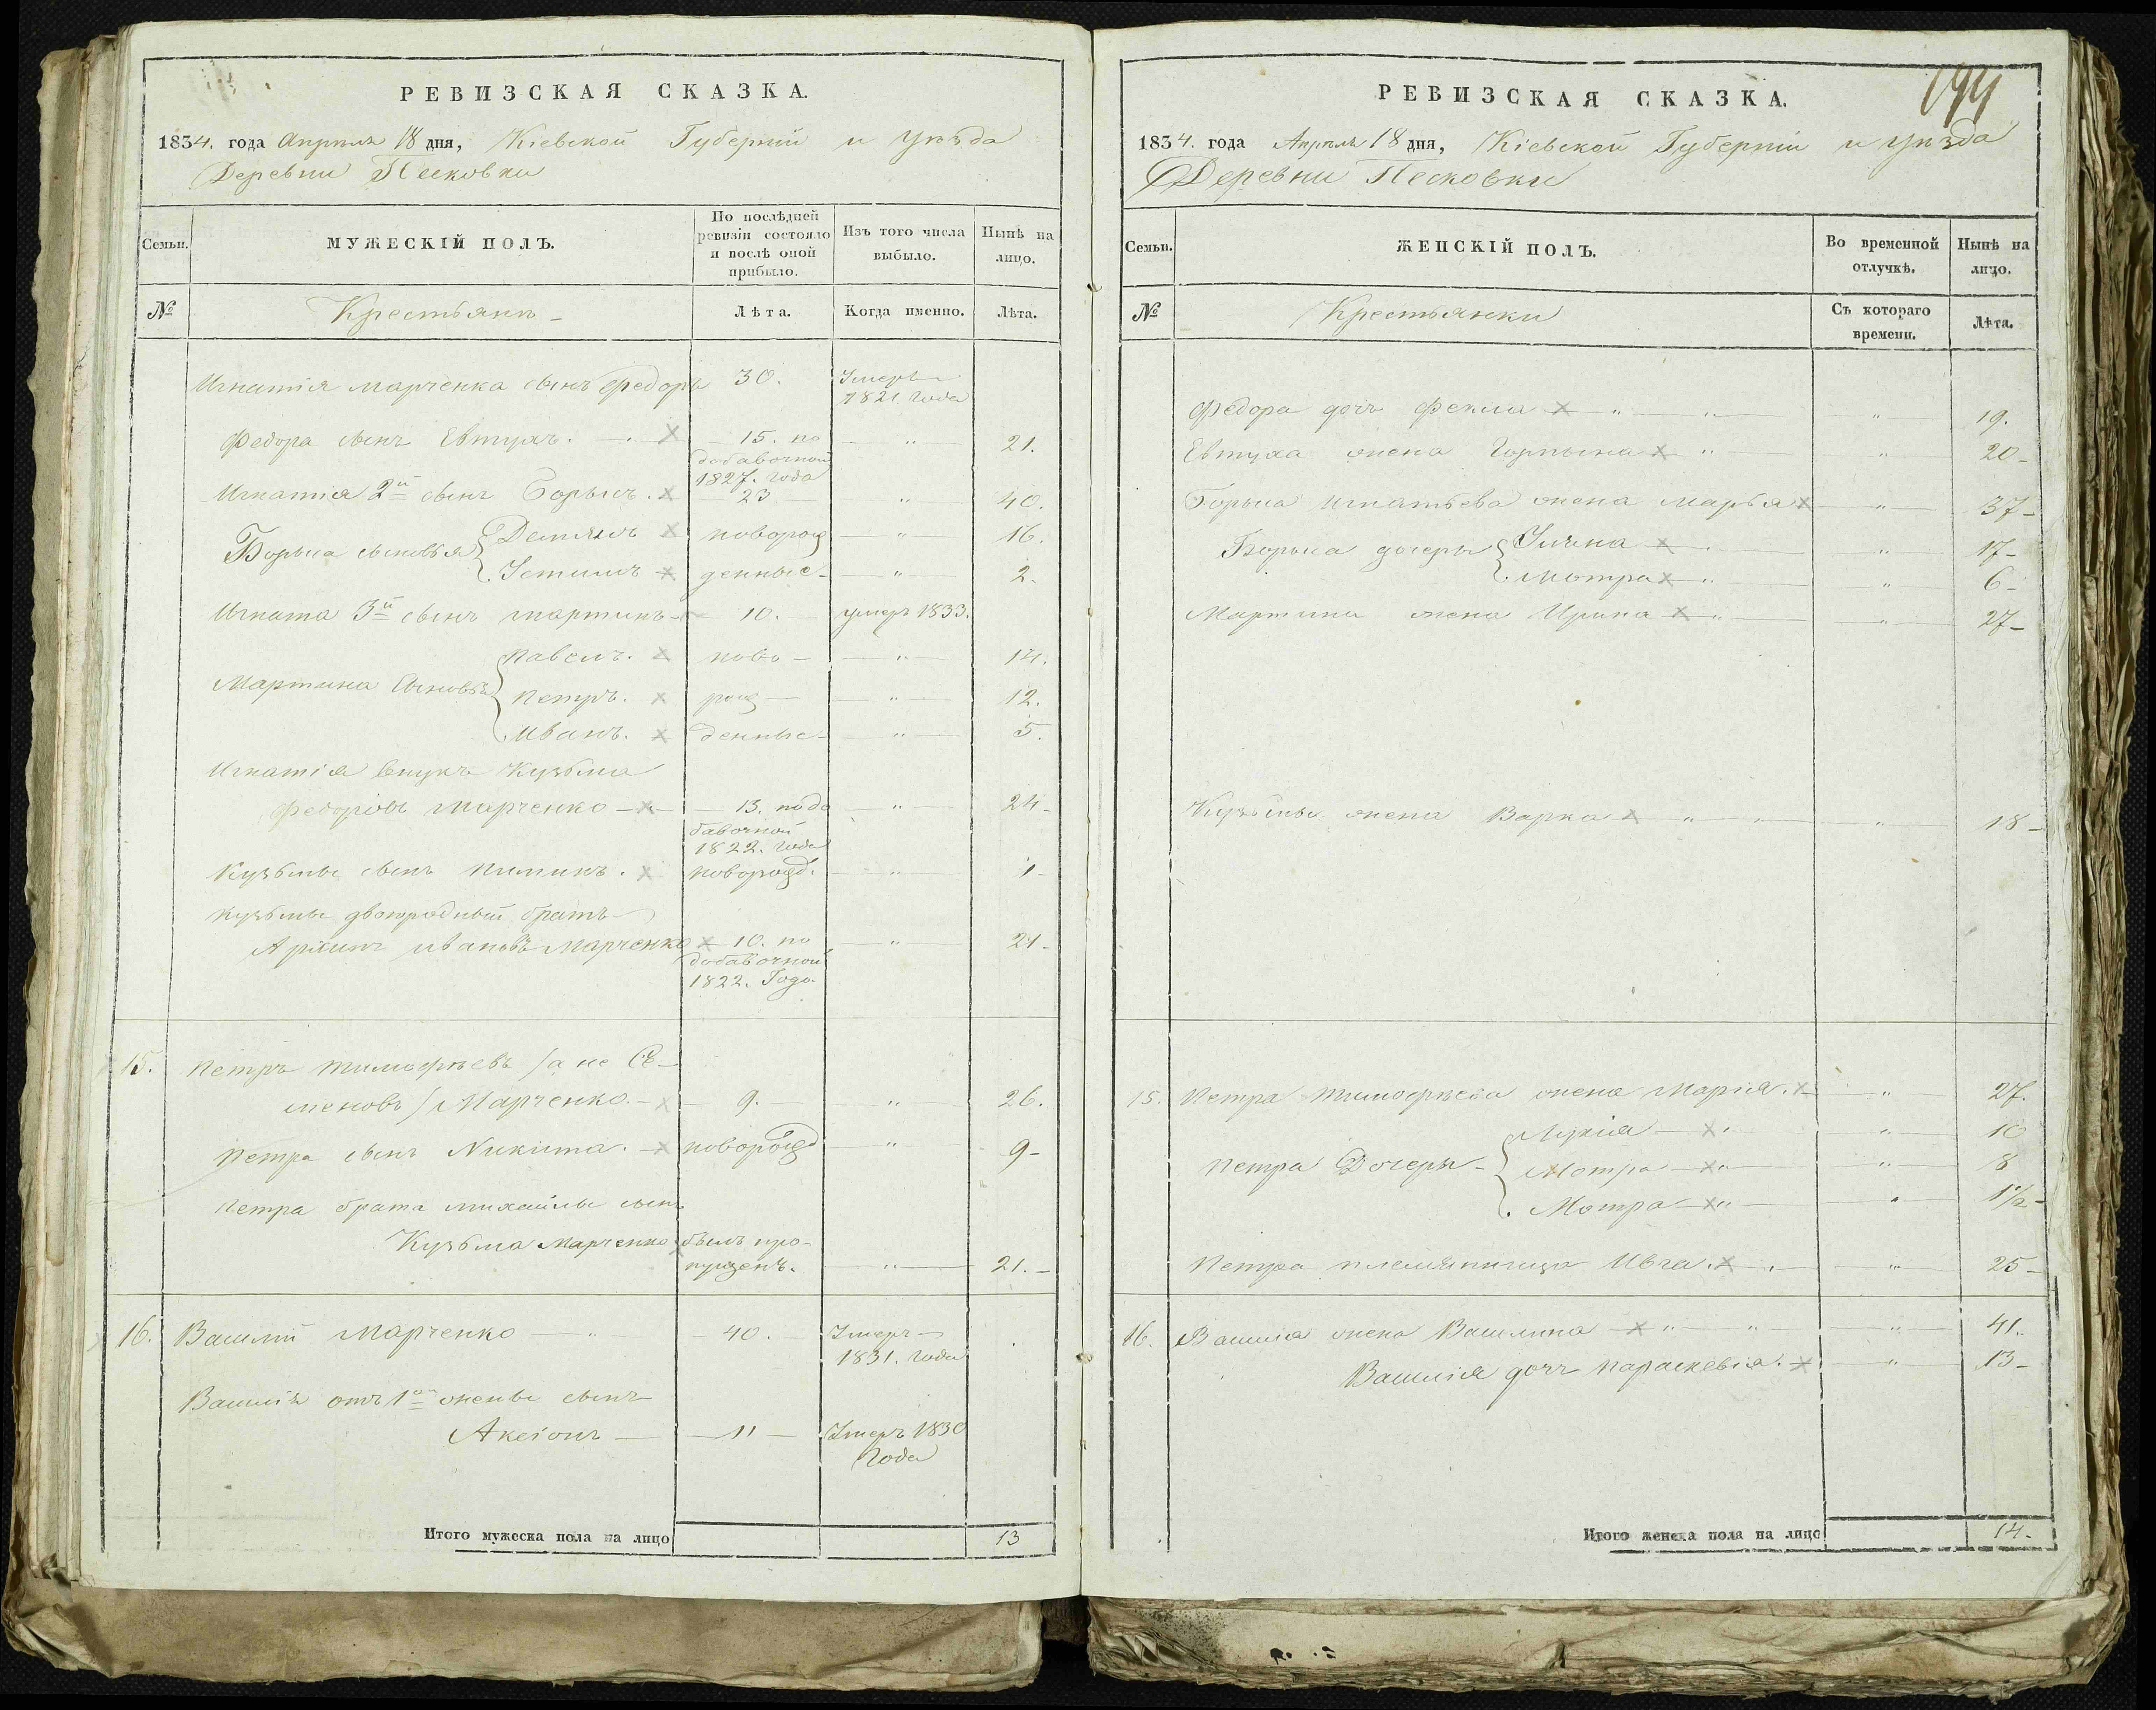 РЕВИЗСКАЯ СКАЗКА.
1834. года Апрѣля 18 дня, Кіевской Губерніи и уѣзда
Деревни Песковки
Семьи.
МУЖЕСКІЙ ПОЛЪ.
По послѣдней ревизіи состояло и послѣ оной прибыло.
Изъ того числа выбыло.
Нынѣ на лицо.
№
Крестьянъ
Лѣта.
Когда именно.
Лѣта.
Игнатія Марченка сынъ Федоръ 30. Умеръ 1821 года
Федора сынъ Евтухъ. 15. по добавочной 1827. года " 21.
Игнатія 2й сынъ Борысъ. 23 " 40.
Борыса сыновья Демянъ новорож " 16.
Устимъ денные " 2.
Игната 3й сынъ Мартинъ 10. умеръ 1833.
Мартина сыновья Павелъ. ново " 14.
Петръ. рож " 12.
Иванъ. денные " 5.
Игнатія внукъ Кузьма
Федоровъ Марченко 13. по до бавочной 1822. года " 24
Кузьмы сынъ Пиминъ. новорожд. " 1
Кузьмы двоюродный братъ
Архипъ Ивановъ Марченко 10. по добавочной 1822. Года " 21
15. Петръ Тимофѣевъ /а не Се-
меновъ/ Марченко. 9. " 26.
Петра сынъ Никита. новорожд " 9
Петра брата Михайлы сынъ
Кузьма Марченко былъ про- пущенъ. " 21.
16. Василій Марченко " 40. Умеръ 1831. года
Василія отъ 1й жены сынъ
Аксіонъ 11 Умеръ 1830 года
Итого мужеска пола на лицо 13
194
РЕВИЗСКАЯ СКАЗКА.
1834. года Апрѣля 18 дня, Кіевской Губерніи и уѣзда
Деревни Песковки
Семьи.
ЖЕНСКІЙ ПОЛЪ.
Во временной отлучкѣ.
Нынѣ на лицо.
№
Крестьянки
Съ котораго времени.
Лѣта.
Федора дочь Фекла " " " 19.
Евтуха жена Горпына " " 20
Борыса Игнатьева жена Марья " 37
Борыса дочеры Улина " 17
Мотра " " 6
Мартина жена Ирина " " 27
Кузьмы жена Варка " " " 18
15. Петра Тимофѣева жена Марія. " 27.
Петра Дочеры Лукія " " 10
Мотра " " 8
Мотра " " 1 1/2
Петра племянница Ивга. " " 25
16. Василія жена Василина " " " 41.
Василія дочь Параскевія. " 13
Итого женска пола на лицо 14